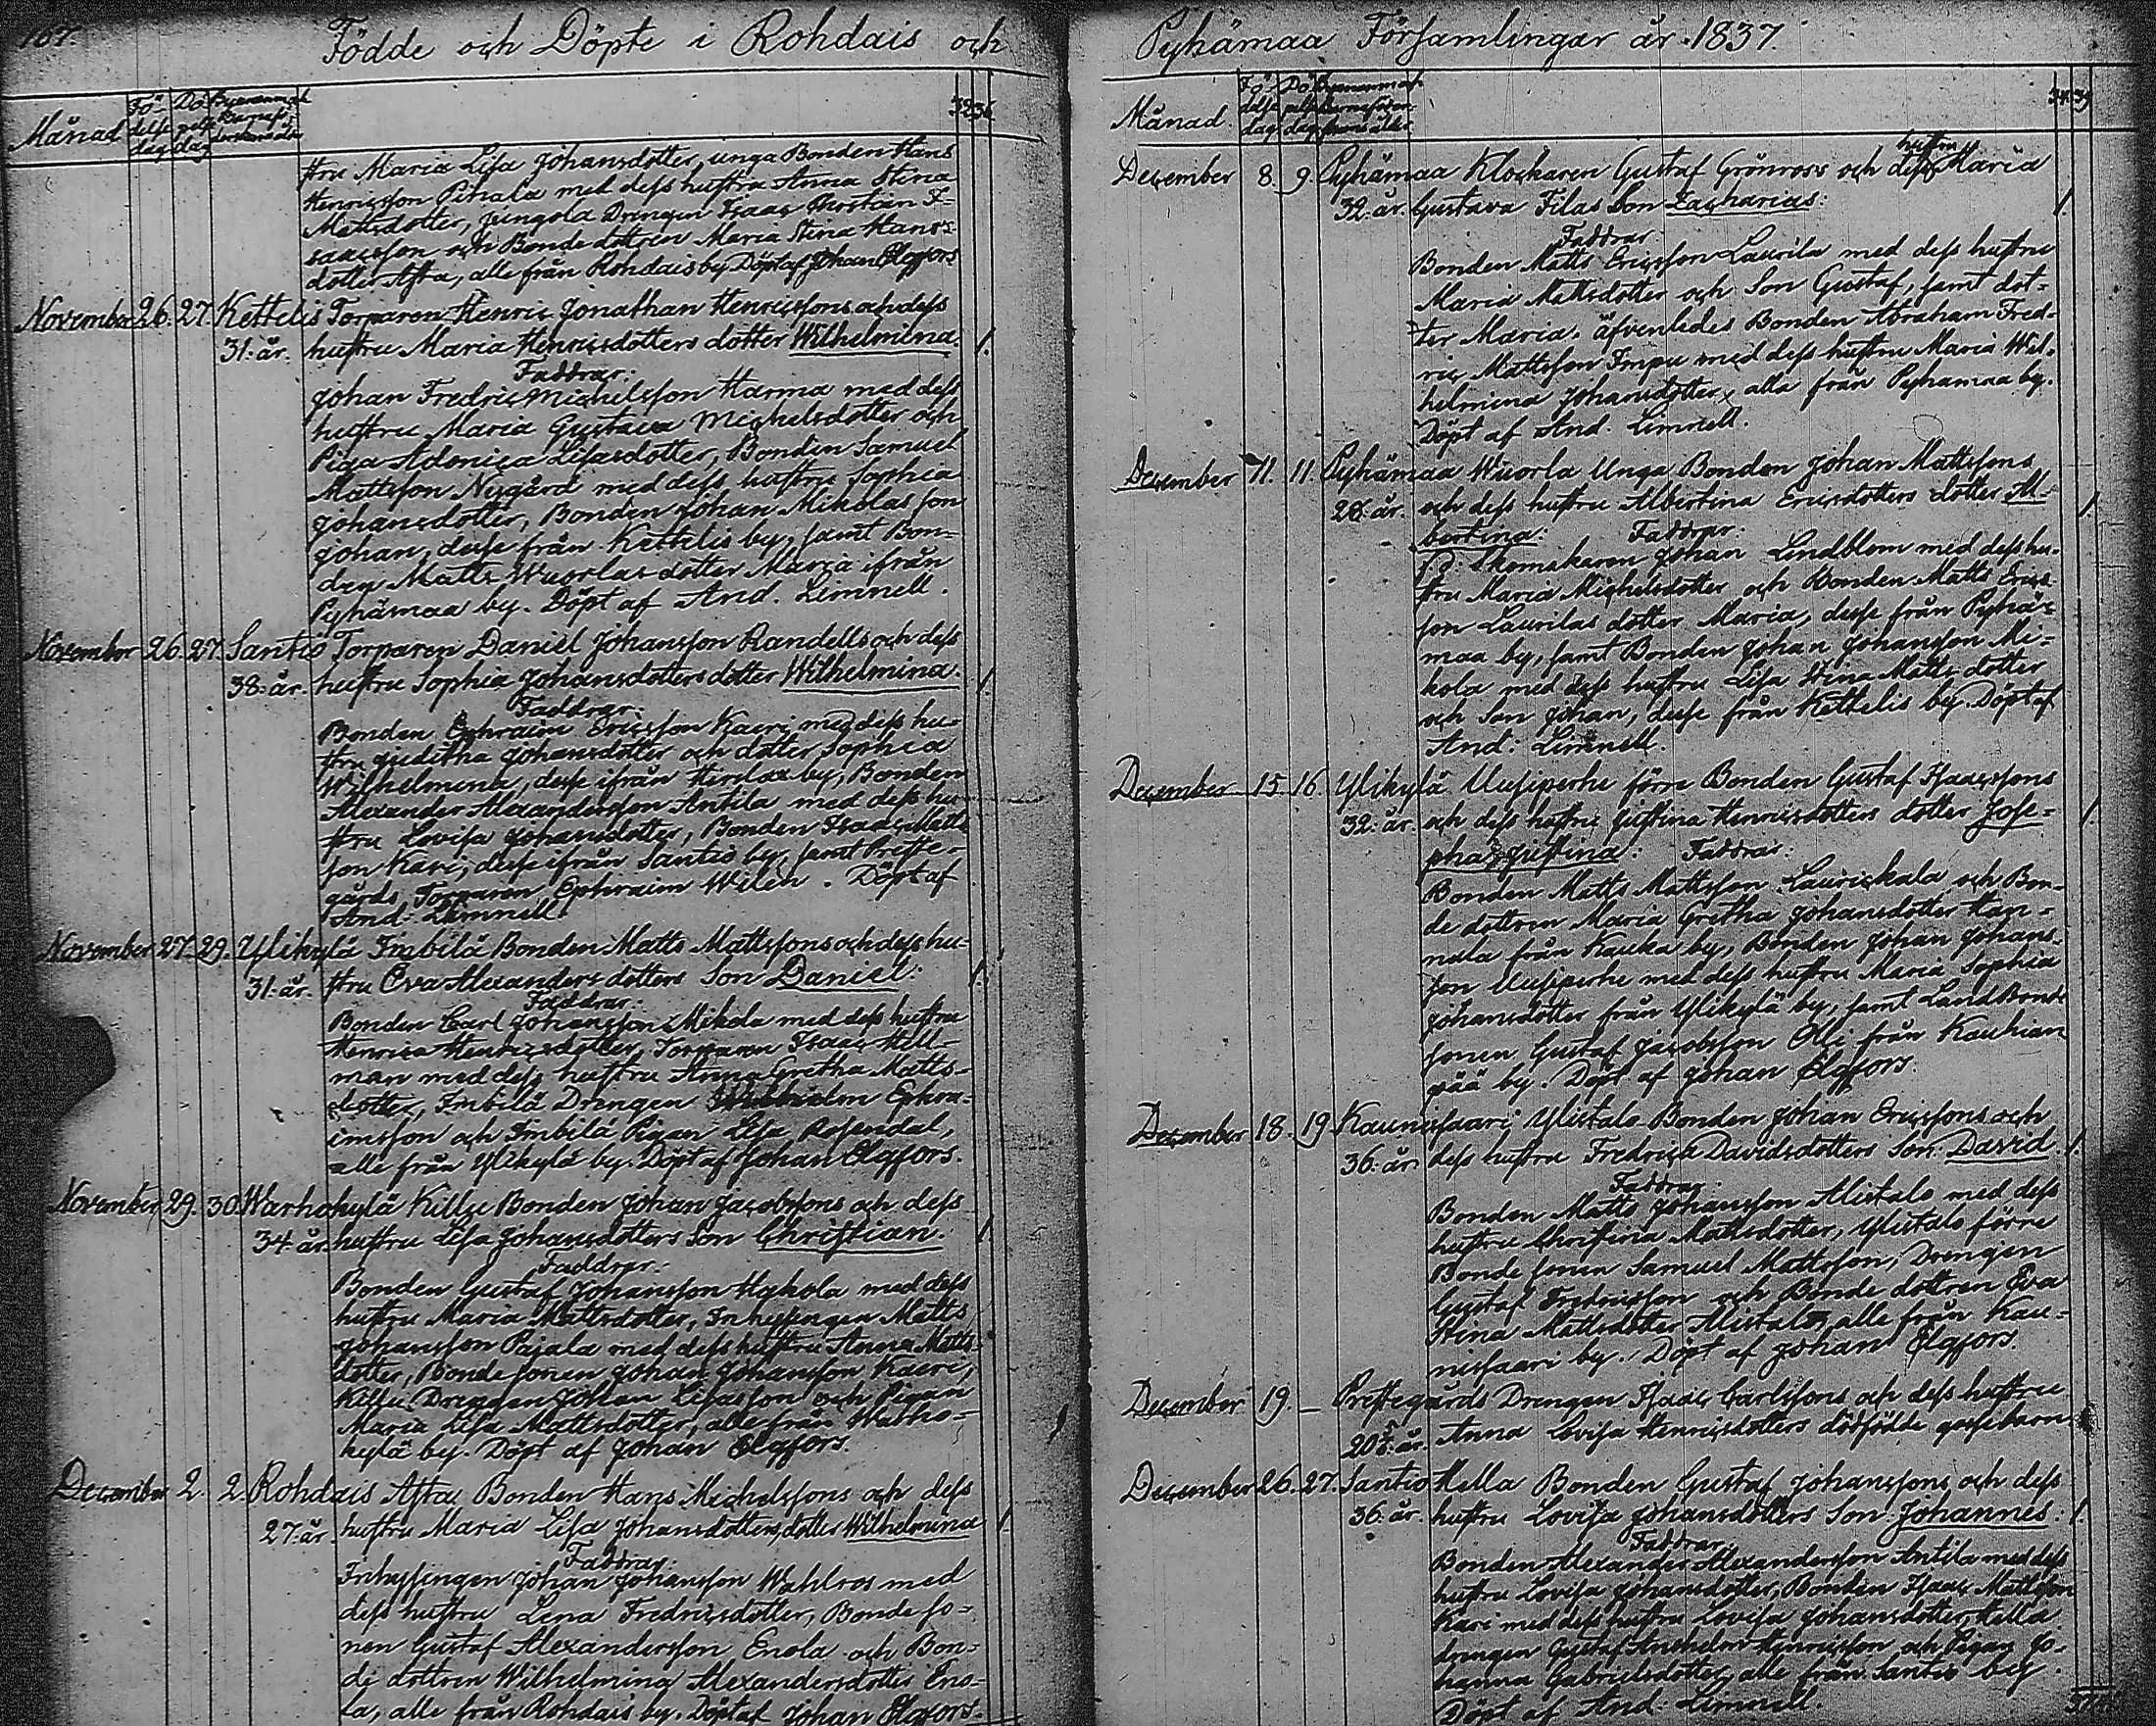 187.
Födde och Döpte i Rohdais och
Månad
Fö-
delse
dag
Dö
pelse
dag
32 36
stru Maria Lisa Johansdotter, unga Bonden Hans
Henricsson Pihala med dess hustru Anna Stina
Mattsdotter, Drengen Isaac
saacsson och Bonde dottren Maria Stina Hans-
dotter Asta, alle från Rohdais by Döpt af Johan Elgfors.
November 26. 27. Kettelis Torparen Henric Jonathan Henricssons och dess
31. år. hustru Maria Henricsdotters dotter Wilhelmina. 1.
Faddrar:
Johan Fredric Michelsson Harma med dess
hustru Maria Gustava Michelsdotter och
Piga Adonica Lisasdotter, Bonden Samuel
Mattsson Nygård med dess hustru Sophia
Johansdotter, Bonden Johan Mikolas son
Johan, desse från Kettelis by, samt Bon-
den Matts Wuorlas dotter Maria ifrån
Pyhämaa by. Döpt af And. Limnell.
November 26. 27. Santio Torparen Daniel Johansson Randells och dess
38. år. hustru Sophia Johansdotters dotter Wilhelmina. 1.
Faddrar:
Bonden Ephraim Ericsson Kaeri med dess hu-
stru Juditha Johansdotter och dotter Sophia
Wilhelmina, desse ifrån by, Bonden
Alexander Alexandersson Antila med dess hu
stru Lovisa Johansdotter, Bonden Isaac Matts
son Kari, desse ifrån Santio by, samt Preste-
gårds Torparen Ephraim Wilen. Döpt af
And: Limnell.
November 27. 29. Ylikylä Imbilä Bonden Matts Mattssons och dess hu-
31. år. stru Eva Alexandersdotters Son Daniel: 1.
Faddrar:
Bonden Carl Johansson Mikola med dess hustru
Henrica Henricsdotter, Torparen Isaac Hell-
man med dess hustru Anna Gretha Matts-
dotter, Imbilä Drengen Wilhelm Ephra-
imsson och Imbilä Pigan Lisa Rosendal,
alle från Ylikylä by. Döpt af Johan Elgfors.
November 29. 30. Warhokylä Killu Bonden Johan Jacobssons och dess
34. år. hustru Lisa Johansdotters Son Christian. 1.
Faddrar:
Bonden Gustaf Johansson Hykola med dess
hustru Maria Mattsdotter, Inhysingen Matts
Johansson Pajala med dess hustru Anna Matts-
dotter, Bonde sonen Johan Johansson Kaeri,
Killu Drengen Johan Lisasson och Pigan
Maria Lisa Mattsdotter, alle från Warho-
kylä by. Döpt af Johan Elgfors.
December 2. 2. Rohdais Asta Bonden Hans Michelssons och dess
27. år. hustru Maria Lisa Johansdotters dotter Wilhelmina 1.
Faddrar:
Inhysingen Johan Johansson Wahlros med
dess hustru Lena Fredricsdotter, Bonde so-
nen Gustaf Alexandersson Enola och Bon-
de dottren Wilhelmina Alexandersdotter Eno-
la, alle från Rohdais by. Döpt af Johan Elgfors.
Pyhämaa Församlingar år 1837.
Månad.
Fö-
delse
dag
Dö
pelse
dag
34 39
hustru
December 8. 9. Pyhämaa Klockaren Gustaf Grönroos och dess Maria
32. år. Gustava Filas Son Zacharias: 1.
Faddrar
Bonden Matts Ericsson Laurila med dess hustru
Maria Mattsdotter och Son Gustaf, samt dot-
ter Maria. äfvenledes Bonden Abraham Fred-
ric Mattsson Impu med dess hustru Maria Wil-
helmina Johansdotter, alla från Pyhämaa by.
Döpt af And. Limnell.
December 11. 11. Pyhämaa Wuorla Unga Bonden Johan Mattssons
28. år. och dess hustru Albertina Ericsdotters dotter Al- 1.
bertina: Faddrar:
f.d. Skomakaren Johan Lindblom med dess hu-
stru Maria Michelsdotter och Bonden Matts Erics
son Laurilas dotter Maria, desse från Pyhä-
maa by, samt Bonden Johan Johansson Mi-
kola med dess hustru Lisa Stina Matts dotter
och Son Johan, desse från Kettelis by. Döpt af
And: Limnell.
December 15. 16. Ylikylä Uusiperhe förre Bonden Gustaf Isaacssons
32. år. och dess hustru Justina Henricsdotters dotter Jose- 1.
pha Justina: Faddrar:
Bonden Matts Mattsson Laurickala och Bon-
de dottren Maria Gretha Johansdotter Han-
nula från Kauka by, Bonden Johan Johans-
son Uusiperhe med dess hustru Maria Sophia
Johansdotter från Ylikylä by, samt Land Bonde
sonen Gustaf Jacobsson Olli från Kauhian
pää by. Döpt af Johan Elgfors.
December 18. 19. Kaunissaari Ylistalo Bonden Johan Ericssons och
36. år. dess hustru Fredrica Davidsdotters Son David. 1.
Faddrar:
Bonden Matts Johansson Alistalo med dess
hustru Christina Mattsdotter, Ylistalo förre
Bonde sonen Samuel Mattsson, Drengen
Gustaf Fredricsson och Bonde dottren Eva
Stina Mattsdotter Alistalo, alle från Kau-
nissaari by. Döpt af Johan Elgfors.
December 19. — Prestegårds Drengen Isaac Carlssons och dess hustru
år. Anna Lovisa Henricsdotters dödfödde gossebarn
December 26. 27. Santio Hella Bonden Gustaf Johanssons och dess
36. år. hustru Lovisa Johansdotters Son Johannes: 1.
Faddrar
Bonden Alexander Alexandersson Antila med dess
hustru Lovisa Johansdotter, Bonden Isaac Mattsson
Kari med dess hustru Lovisa Johansdotter, Hella
drengen Gustaf Anshelm Henricsson och Pigan Jo-
hanna Gabrielsdotter, alle från Santio by
Döpt af And. Limnell.